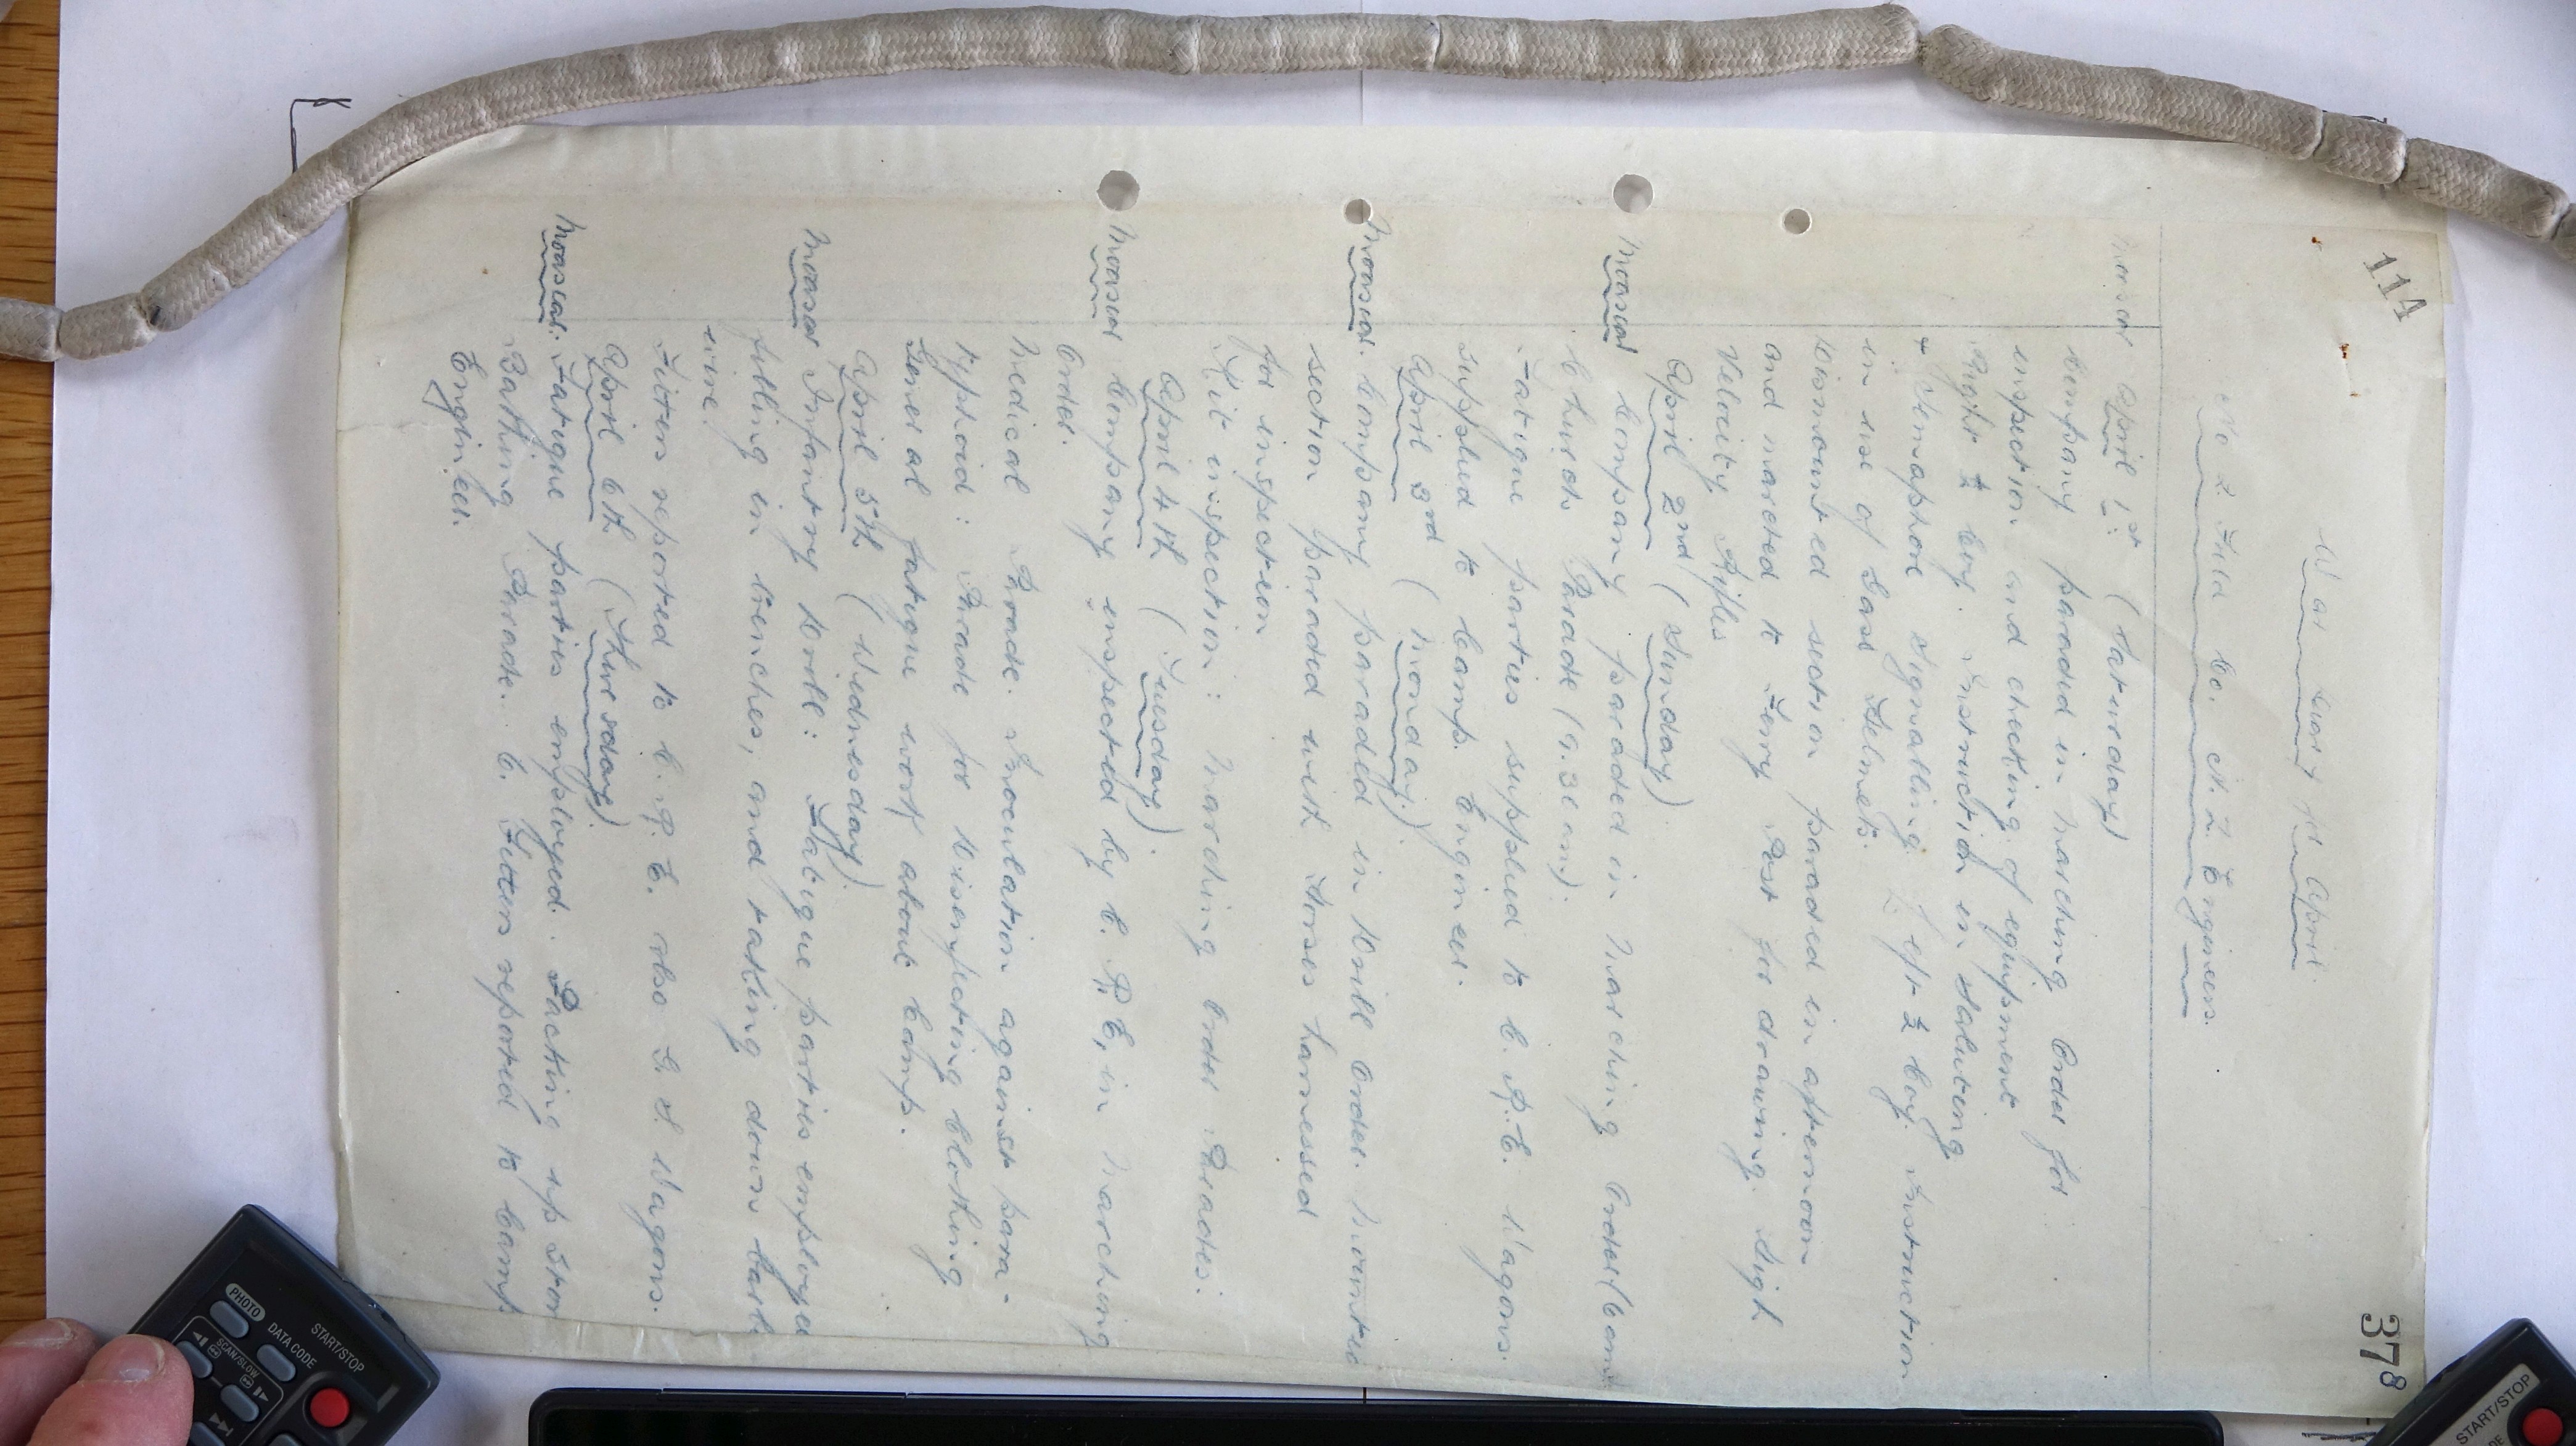 114
378
War Diary for April.
No 2 Field Co. N.Z. Engineers.
Moascar April 1st: (Saturday)
Company paraded in Marching Order for
inspection and checking of equipment
Right ½ Coy. Instruction in Saluting
+ Semaphore Signalling. Left ½ Coy. Instruction
in use of Gas Helmets.
Dismounted section paraded in afternoon
and marched to Ferry Post for drawing High
Velocity Rifles
April 2nd (Sunday)
Moascar Company paraded in Marching Order
Church Parade (9.30 am).
Fatigue parties supplied to C.R.E. Wagons
supplied to Camp Engineer.
April 3rd (Monday)
Moascar. Company paraded in Drill Order. Mounted
section paraded with Horses harnessed
for inspection
Kit inspection: Marching Order Parades.
April 4th (Tuesday)
Moascar Company inspected by C.R.E, in Marching
Order.
Medical Parade. Inoculation against para-
typhoid: Parade for Disinfecting Clothing
General fatigue work about Camp.
April 5th (Wednesday)
Moascar Infantry Drill: Fatigue parties employed
filling in trenches, and taking down barb
wire
Fitters reported to C.R.E. also G.S. Wagons.
April 6th (Thursday)
Moascar. Fatigue parties employed. Packing up Stor
Bathing Parade. C. Fitters reported to Camp
Engineer.
PHOTO
DATA CODE
START/STOP
SCAN/SLOW
START/STOP